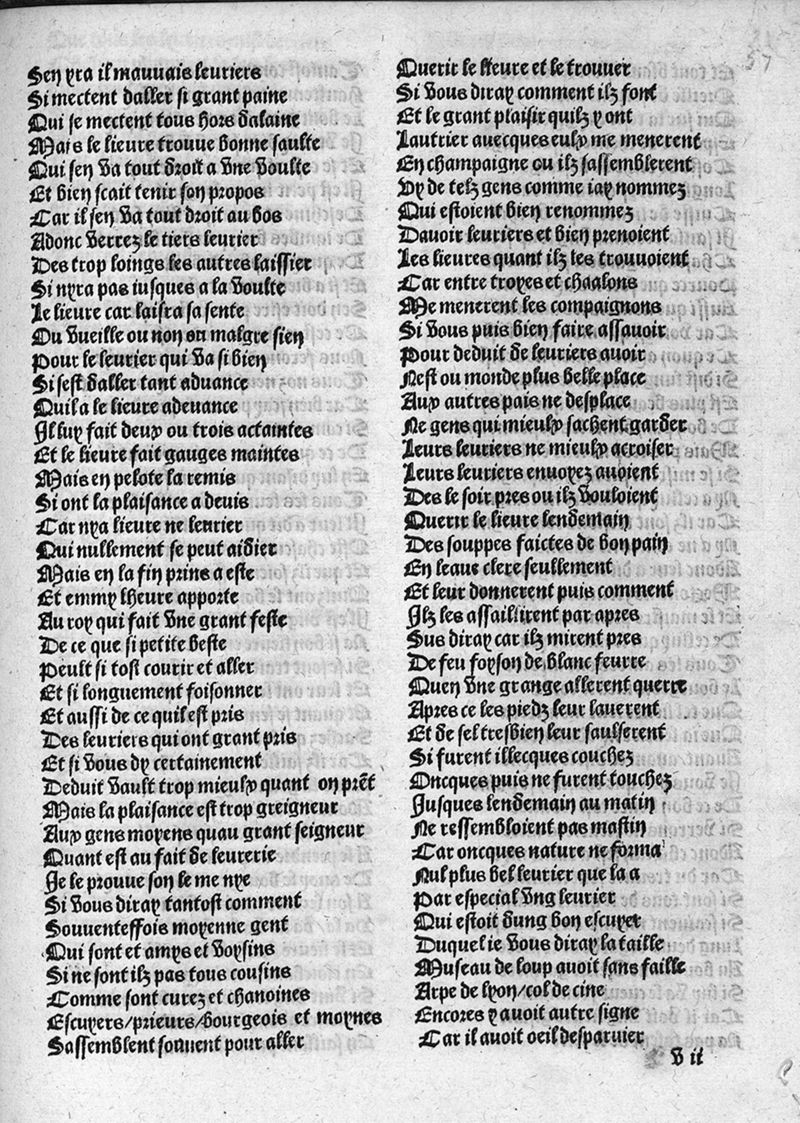 57
Sen yra il mauuais leuriers
Si mectent daller si grant paine
Qui se mectent tous hors dalaine
Mais le lieure trouue bonne saulte
Qui sen va tout droit a vne voulte
Et bien scait tenir son propos
Car il sen va tout droit au bos
Adonc verrez le tiers leurier
Des trop loings les autres laissier
Si nyra pas iusques a la voulte
Le lieure car laisra sa sente
Ou vueille ou non on malgre sien
Pour le leurier qui va si bien
Si sest daller tant aduance
Quil a le lieure adeuance
Il luy fait deux ou trois actaintes
Et le lieure fait gauges maintes
Mais en pelote la remis
Si ont la plaisance a deuis
Car nya lieure ne leurier
Qui nullement se peut aidier
Mais en la fin prins a este
Et emmy lheure apporte
Au roy qui fait vne grant feste
De ce que si petite beste
Peult si tost courir et aller
Et si longuement foisonner
Et aussi de ce quil est pris
Des leuriers qui ont grant pris
Et si vous dy certainement
Deduit vault trop mieulx quant on prēt
Mais la plaisance est trop greigneur
Aux gens moyens quau grant seigneur
Quant est au fait de leurerie
Je le prouue son le me nye
Si vous diray tantost comment
Souuenteffois moyenne gent
Qui sont et amys et voysins
Si ne sont ilz pas tous cousins
Comme sont curez et chanoines
Escuyers/prieurs/bourgeois et moynes
Sassemblent souuent pour aller
Querir le lieure et le trouuer
Si vous diray comment ilz font
Et le grant plaisir quilz y ont
Lautrier auecques eulx me menerent
En champaigne ou ilz sassemblerent
Vy de telz gens comme iay nommez
Qui estoient bien renommez
Dauoir leuriers et bien prenoient
Les lieures quant ilz les trouuoient
Car entre troyes et chaalons
Me menerent les compaignons
Si vous puis bien faire assauoir
Pour deduit de leuriers auoir
Nest ou monde plus belle place
Aux autres pais ne desplace
Ne gens qui mieulx sachent garder
Leurs leuriers ne mieulx acroiser
Leurs leuriers enuoyez auoient
Des le soir pres ou ilz vouloient
Querir le lieure lendemain
Des souppes faictes de bon pain
En leaue clere seullement
Et leur donnerent puis comment
Ilz les assaillirent par apres
Sus diray car ilz mirent pres
De feu foyson de blanc feurre
Quen vne grange allerent querre
Apres ce les piedz leur lauerent
Et de sel tresbien leur saulserent
Si furent illecques couchez
Oncques puis ne furent touchez
Jusques lendemain au matin
Ne ressembloient pas mastin
Car oncques nature ne forma
Nul plus bel leurier que la a
Par especial vng leurier
Qui estoit dung bon escuyer
Duquel ie vous diray la taille
Museau de loup auoit sans faille
Arpe de lyon/col de cine
Encores y auoit autre signe
Car il auoit oeil desparuier
v ii